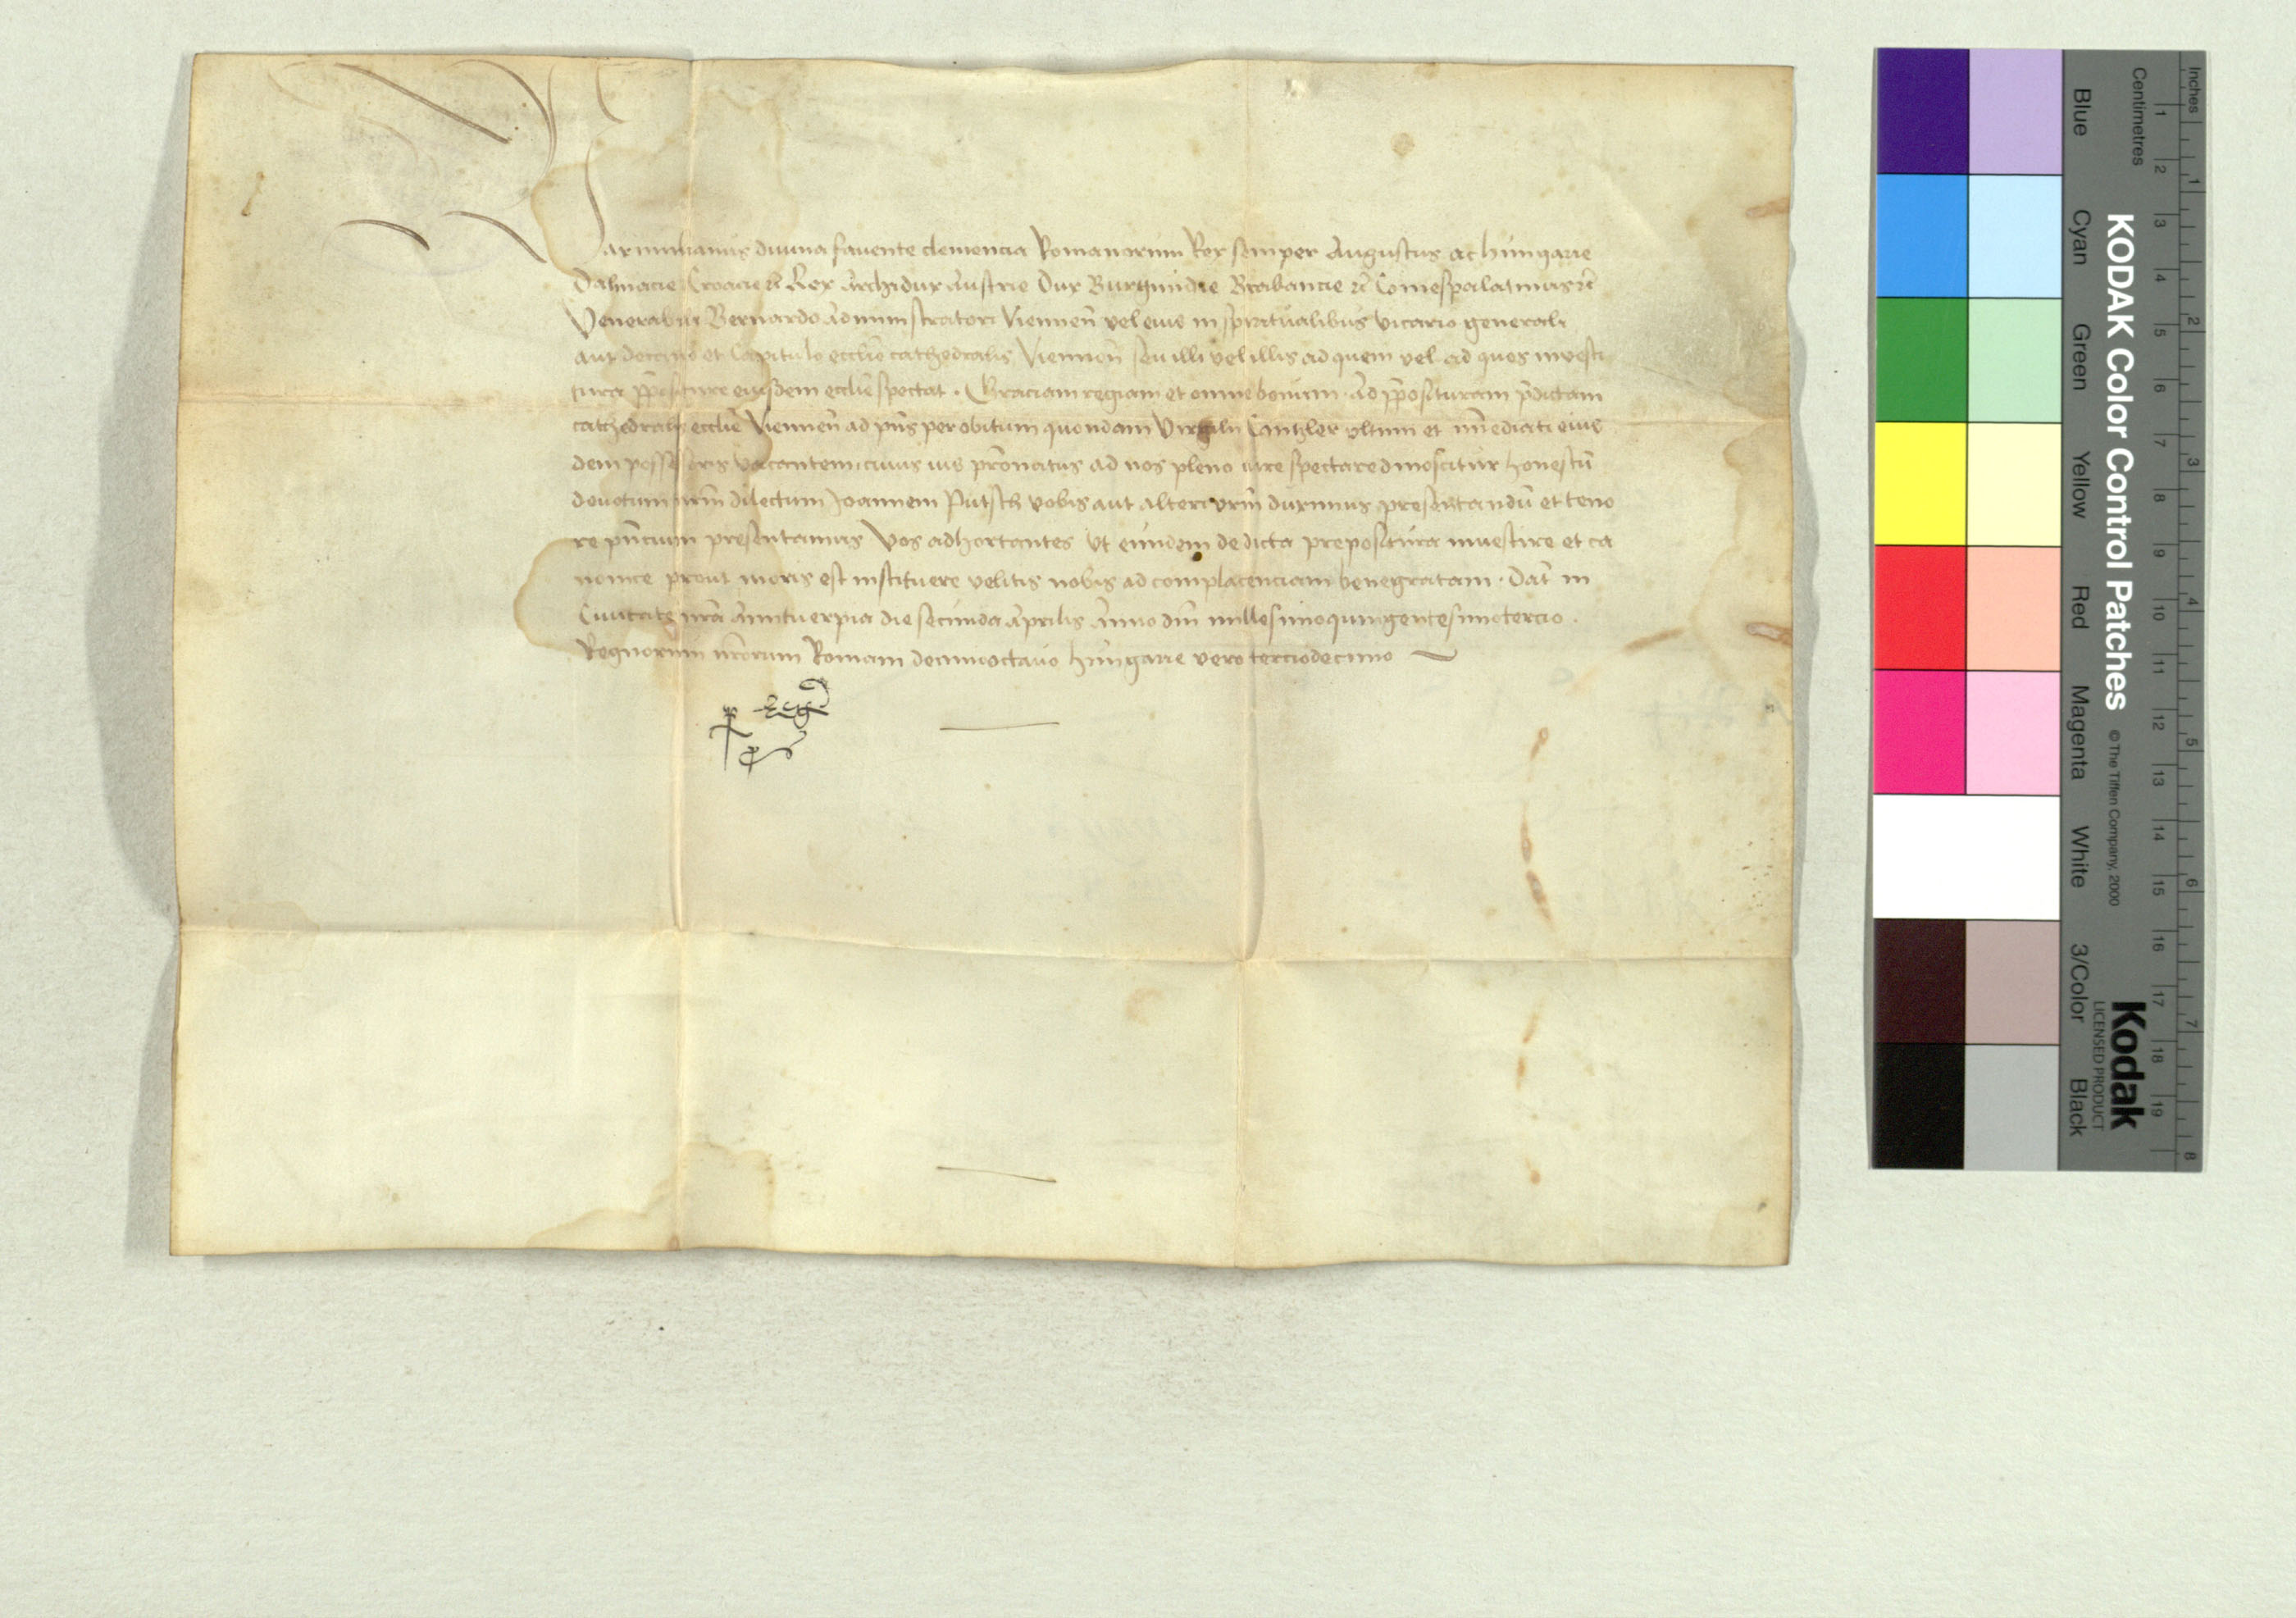 Maximilianus divina favente clemencia Romanorum Rex semper Augustus ac hungarie
Dalmacie Croacie rc̃ Rex Archidux Austrie Dux Burgundie Brabancie rc̃ Comespalatinus rc̃
Venerabili Bernardo Administratori Viennen̄ vel eius in sp̄ritualibus vicario generali
aut decano et Capitulo eccl̄ie cathedralis Viennen̄ seu illi vel illis ad quem vel ad quos investi
tura p̄positure eiusdem eccl̄ie spectat . Graciam regiam et omne bonum . Ad p̄posituram p̄dictam
cathedralis eccl̄ie Viennen̄ ad pn̄s per obitum quondam Virgilii Cantzler vltimi et īmediati eius
dem possessoris vacantem cuius ius pr̄onatus ad nos pleno iure spectare dinoscitur honestū
devotum nr̄m dilectum Joannem Putsch vobis aut alteri vr̄m duximus presentandū et teno
re pn̄cium presentamus Vos adhortantes Vt eundem de dicta prepositura investire et ca
nonice prout moris est instituere velitis nobis ad complacenciam benegratam . Dat̄ in
Civitate nr̄a Anntuerpia die secunda Aprilis Anno dn̄i millesimoquingentesimotercio .
Regnorum nr̄orum Romani decimooctavo hungarie vero terciodecimo
p Regē
p s
KODAK Color Control Patches
© The Tiffen Company, 2000
Kodak
LICENSED PRODUCT
Inches
1 2 3 4 5 6 7 8
Centimetres
1 2 3 4 5 6 7 8 9 10 11 12 13 14 15 16 17 18 19
Blue
Cyan
Green
Yellow
Red
Magenta
White
3/Color
Black